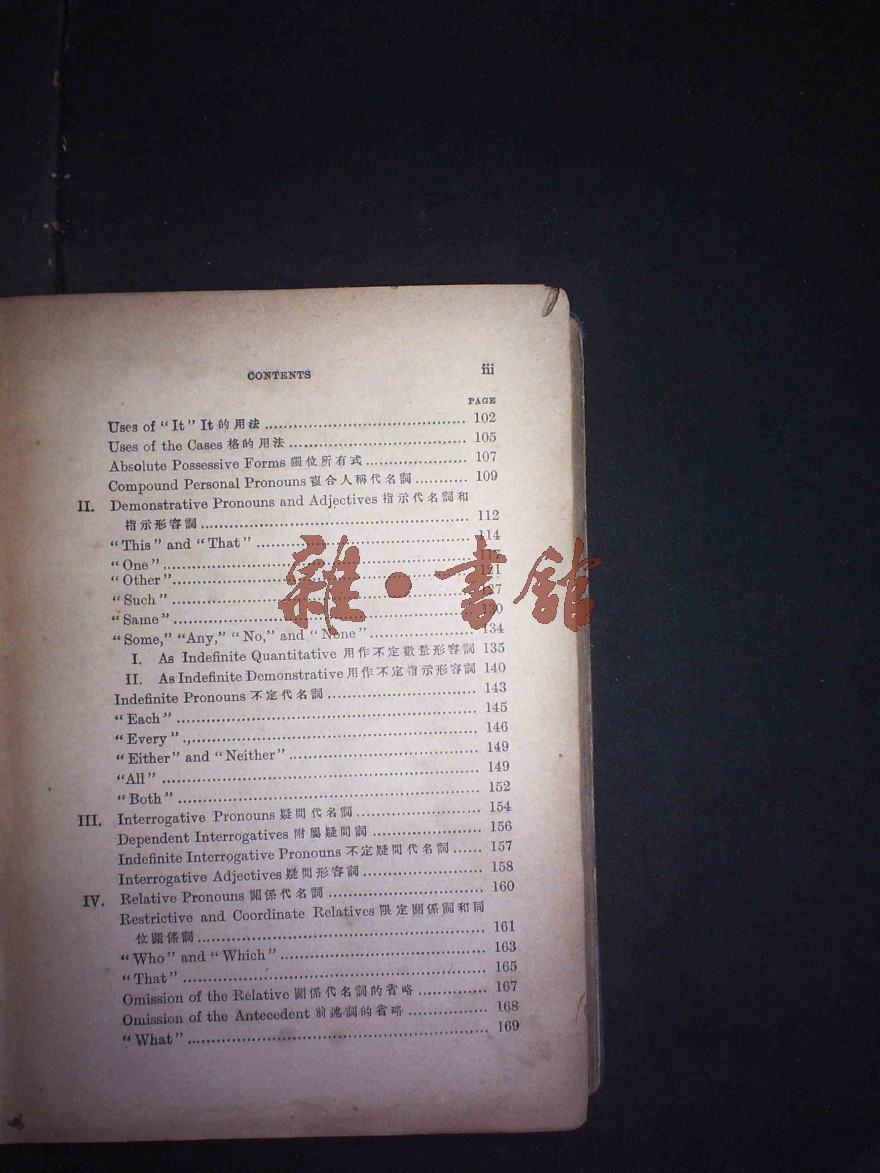 CONTENTS iii
PAGE
Uses of "It" It 的用法 ........ 102
Uses of the Cases 格的用法 ........ 105
Absolute Possessive Forms 獨位所有式 ........ 107
Compound Personal Pronouns 複合人稱代名詞 ........ 109
II. Demonstrative Pronouns and Adjectives 指示代名詞和
指示形容詞 ........ 112
"This" and "That" ........ 114
"One" ........ 117
"Other" ........ 121
"Such" ........
"Same" ........
"Some," "Any," "No," and "None" ........ 134
I. As Indefinite Quantitative 用作不定數量形容詞 135
II. As Indefinite Demonstrative 用作不定指示形容詞 140
Indefinite Pronouns 不定代名詞 ........ 143
"Each" ........ 145
"Every" ........ 146
"Either" and "Neither" ........ 149
"All" ........ 149
"Both" ........ 152
III. Interrogative Pronouns 疑問代名詞 ........ 154
Dependent Interrogatives 附屬疑問詞 ........ 156
Indefinite Interrogative Pronouns 不定疑問代名詞 ...... 157
Interrogative Adjectives 疑問形容詞 ........ 158
IV. Relative Pronouns 關係代名詞 ........ 160
Restrictive and Coordinate Relatives 限定關係詞和同
位關係詞 ........ 161
"Who" and "Which" ........ 163
"That" ........ 165
Omission of the Relative 關係代名詞的省略 ........ 167
Omission of the Antecedent 前述詞的省略 ........ 168
"What" ........ 169
雜·書館